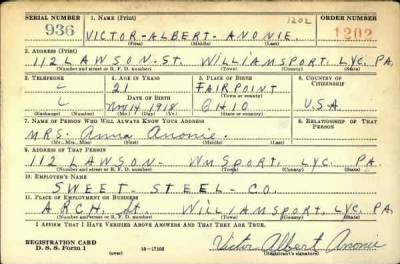 SERIAL NUMBER 1. NAME (Print) 1202 ORDER NUMBER
936 VICTOR-ALBERT-ANONIE. 1202
(First) (Middle) (Last)
2. ADDRESS (Print)
112 LAWSON-ST. WILLIAMSPORT, LYC, PA.
(Number and street or R. F. D. number) (Town) (County) (State)
3. TELEPHONE 4. AGE IN YEARS 5. PLACE OF BIRTH 6. COUNTRY OF CITIZENSHIP
21 FAIRPOINT
DATE OF BIRTH (Town or county)
Nov 14 1918 OHIO U.S.A.
(Exchange) (Number) (Mo.) (Day) (Yr.) (State or country)
7. NAME OF PERSON WHO WILL ALWAYS KNOW YOUR ADDRESS 8. RELATIONSHIP OF THAT PERSON
MRS. Anna Anonie.
(Mr., Mrs., Miss) (First) (Middle) (Last)
9. ADDRESS OF THAT PERSON
112 LAWSON- WMSPORT, LYC. PA.
(Number and street or R. F. D. number) (Town) (County) (State)
10. EMPLOYER'S NAME
SWEET-STEEL-CO.
11. PLACE OF EMPLOYMENT OR BUSINESS
ARCH, St. WILLIAMSPORT, LYC. PA.
(Number and street or R. F. D. number) (Town) (County) (State)
I AFFIRM THAT I HAVE VERIFIED ABOVE ANSWERS AND THAT THEY ARE TRUE.
REGISTRATION CARD
D. S. S. Form 1 (over) 16-17105 Victor Albert Anonie
(Registrant's signature)